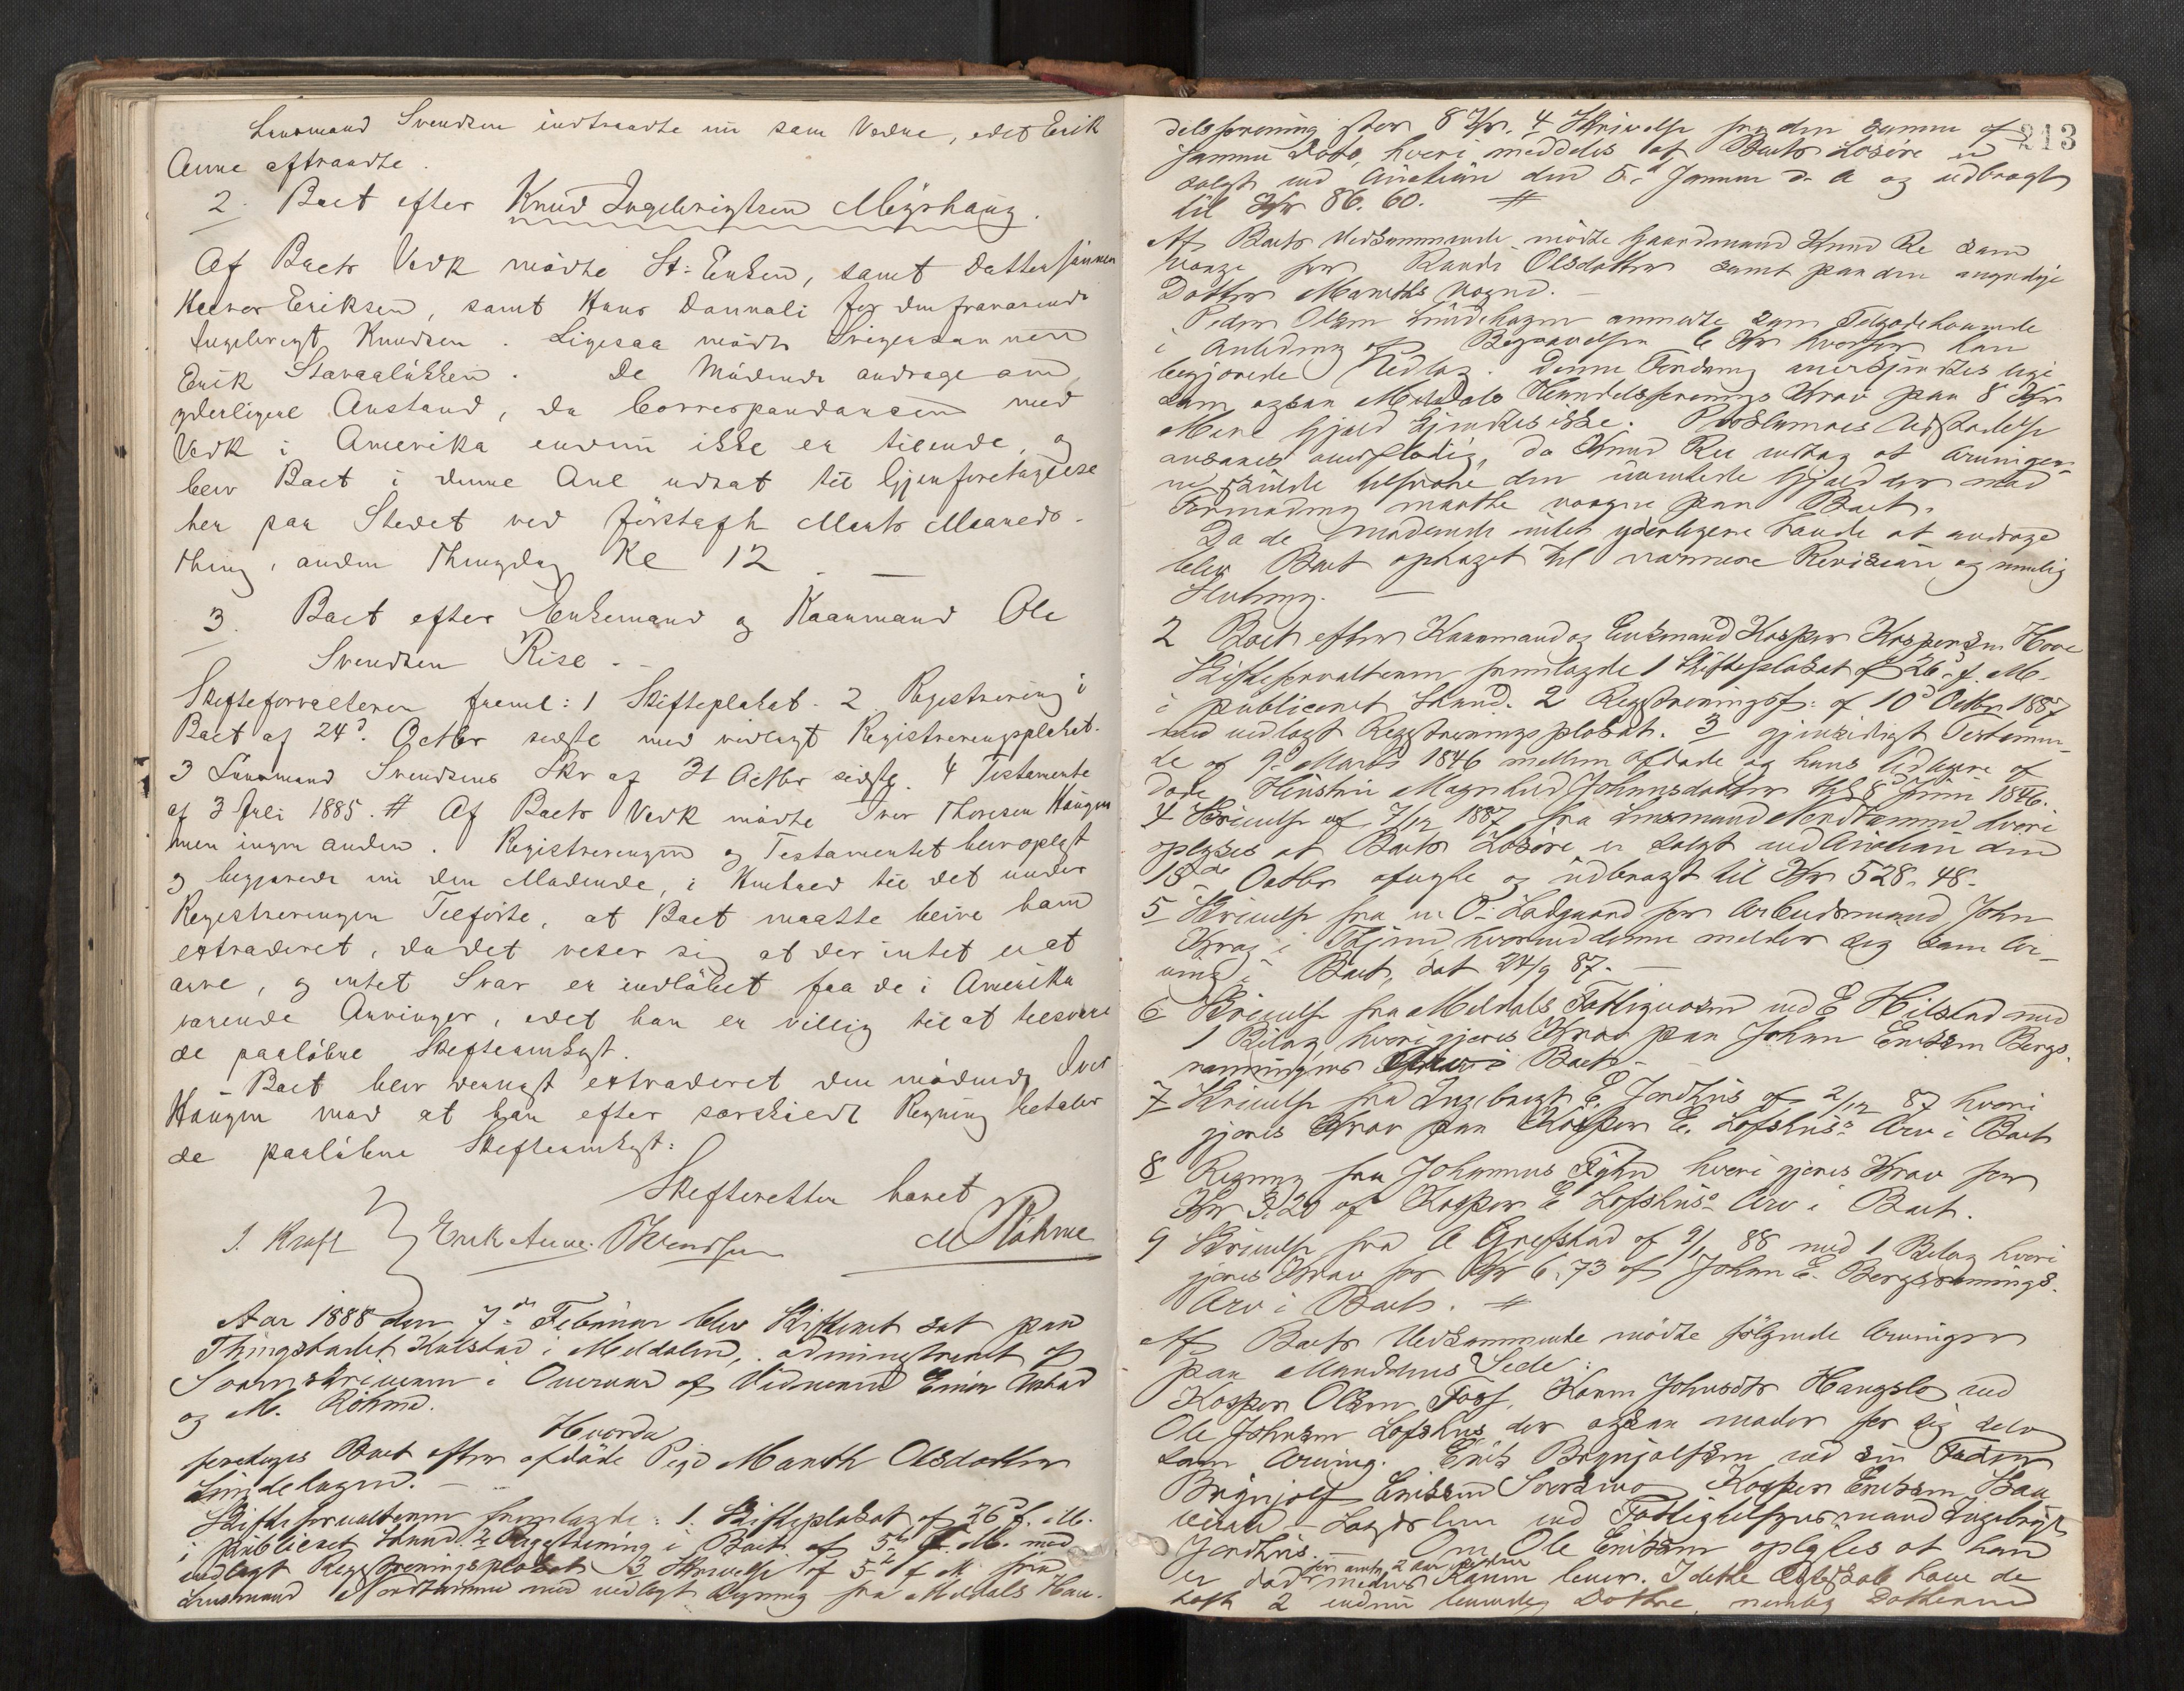 Lensmand Svendsen indtraadte nu som Vidne, idet Erik
Aune aftraadte.
2. Boet efter Knud Ingebrigtsen Myrhaug.
Af Boets Vedk mödte St: Enken, samt Dattersönnen
Halvor Eriksen, samt Hans Dannali for den fraværende
Ingebrigt Knudsen. Ligesaa mödte Svigersønnen
Erik Stavaaløkken. De Mödende androge om
yderligere Anstand, da Correspondancen med
Vedk i Amerika endnu ikke er tilende, og
blev Boet i denne Anl udsat til Gjenforetagelse
her paa Stedet ved förstafh Marts Maaneds-
thing, anden Thingdag Kl 12. —
3. Boet efter Enkemand og Kaarmand Ole
Svendsen Rise. -
Skifteforvalteren freml: 1 Skifteplakat. 2 Registrering i
Boet af 24d. Octbr sidste med vedlagt Registreringsplakat.
3 Lensmand Svendsens Skr af 31 Octbr sidste. 4 Testamente
af 3 Juli 1885. # Af Boets Vedk mödte Iver Thoresen Haugen
men ingen anden. Registreringen og Testamentet blev oplæst
og begjærede nu den Mödende, i Henhold til det under
Registreringen Tilförte, at Boet maatte blive ham
extraderet, da det viser sig at der intet er at
arve, og intet Svar er indlöbet fra de i Amerika
værende Arvinger, idet han er villig til at tilsvare
de paalöbne Skifteomkost.
- Boet blev dernæst extraderet den mödende Iver
Haugen mod at han efter særskildt Regning betaler
de paalöbne Skifteomkost:
Skifteretten hævet
J. Kraft } Erik Aune. Svendsen M Röhme
Aar 1888 den 7de Februar blev Skifteret sat paa
Thingstedet Kalstad i Meldalen, administreret af
Sorenskriveren i Overvær af Vidnerne Einar
og M. Röhme.
Hvorda
foretoges Boet efter afdöde Pige Marith Olsdatter
Lundehagen. -
Skifteforvalteren fremlagde: 1. Skifteplakat af 26d f. M.
i publiceret Stand. 2 Registrering i Boet af 5te f. M. med
vedlagt Registreringsplakat 3 Skrivelse af 5te f M fra
Lensmand Nordtømme med vedlagt Regning fra Meldals Han-
213
delsforening stor 8 Kr. 4 Skrivelse fra den samme af
samme Dato, hvori meddeles at Boets Lösöre er
solgt ved Auction den 5te Januar d. A og udbragt
til Kr 86.60. #
Af Boets Vedkommende mödte Gaardmand Knud Re som
Værge for Randi Olsdatter samt paa den umyndige
Datter Mariths vegne. —
Peder Olsen Lundehagen anmeldte som Tilgodehavende
i Anledning af Begravelsen 6 Kr hvorfor han
begjærede Udlæg. Denne Fordring anerkjendtes lige
som ogsaa Meldals Handelsforenings Krav paa 8 Kr
Mere Gjæld kjendtes ikke. Proklamas Udstedelse
ansaaes overflødig, da Knud Re vedtog at Arvinger-
ne skulde tilsvare den uanmeldte Gjæld der mod
Formodning maatte vaagne paa Boet.
Da de Mødende intet yderligere havde at androge
blev Boet optaget til nærmere Revision og mulig
Slutning. —
2 Boet efter Kaarmand og Enkemand Kasper Kaspersen Hove
Skifteforvalteren fremlagde 1 Skifteplakat af 26d f. M.
i publiceret Stand. 2 Registreringsf: af 10d Octbr 1887
med vedlagt Registreringsplakat. 3 gjensidigt Testamen-
te af 9d Marts 1846 mellem Afdøde og hans tidligere af-
døde Hustru Magnhild Johnsdatter thl 8d Juni 1846.
4 Skrivelse af 7/12 1887 fra Lensmand Nordtømme hvori
oplyses at Boets Lösöre er solgt ved Auction den
18de Octbr afvigte og udbragt til Kr 528.48.
5 Skrivelse fra O. Ladgaard for Arbeidsmand John
Krag i Thjem, hvorved denne melder sig som Ar-
ving i Boet, dat 24/9 87. —
6 Skrivelse fra Meldals Fattigvæsen ved E Hilstad med
1 Bilag, hvori gjöres Krav paa Johan Eriksen Bergs-
rønningens Arv i Boet -
7 Skrivelse fra Ingebrigt E. Jordhus af 2/12 87 hvori
gjöres Krav paa Kasper E. Lofshus's Arv i Boet
8 Regning fra Johannes hvori gjöres Krav for
Kr 3.20 af Kasper E Lofshus's Arv i Boet.
9 Skrivelse fra A Grefstad af 9/1 88 med 1 Bilag hvori
gjöres Krav for Kr 6.73 af Johan E. Bergsrønnings
Arv i Boet. #
Af Boets Vedkommende mödte fölgende Arvinger
paa Mandens Side:
Kasper Olsen Foss, Karen Johnsdtr Haugslo ved
Ole Johnsen Lofshus der ogsaa möder for sig selv
som Arving. Erik Brynjolfsen ved sin Fader
Brynjolf Eriksen Kasper Eriksen
Lofshus ved Fattigforstander Ingebrigt
Jordhus. — Om Ole Eriksen oplyses at han
er död for omtr. 2 Aar siden medens Konen lever. I dette Ægteskab have de
havt 2 endnu levende Döttre, nemlig Dötrene